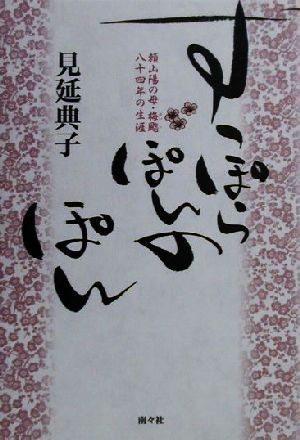 すっぽらぽんのぽん
頼山陽の母・梅颸
八十四年の生涯
見延典子
南々社